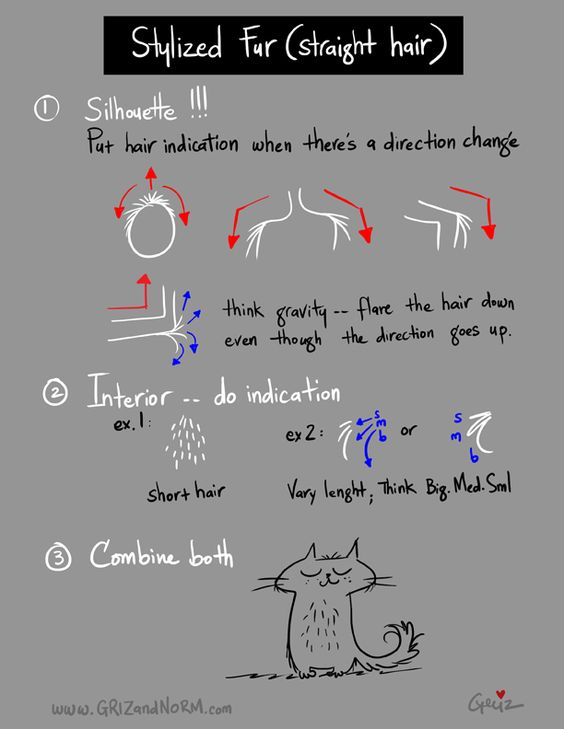 Stylized Fur (straight hair)
① Silhouette !!!
Put hair indication when there's a direction change
think gravity -- flare the hair down
even though the direction goes up.
② Interior -- do indication
ex.1:
short hair
ex2:
s
m
b
or
s
m
b
Vary lenght; Think Big. Med. Sml
③ Combine both
www.GRIZandNORM.com
Griz